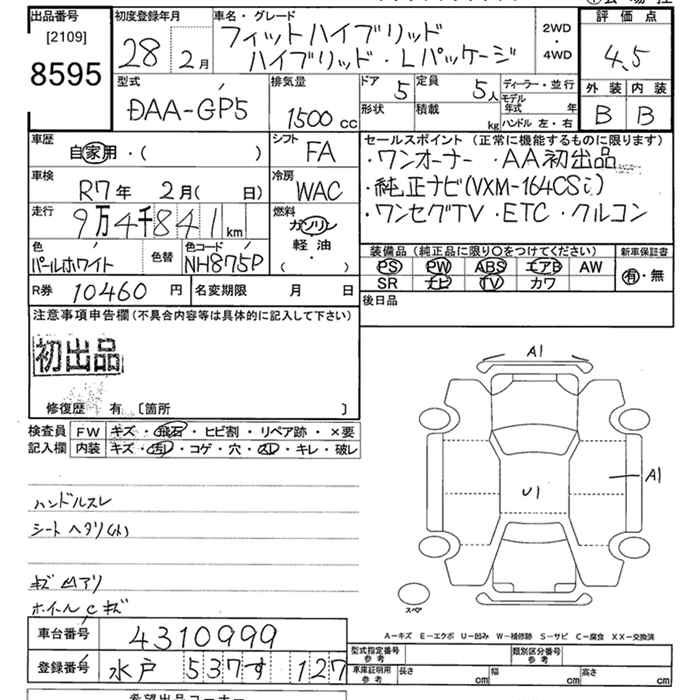 出品番号 [2109] 8595
初度登録年月 28 2月
車名・グレード フィットハイブリッド
ハイブリッド・Lパッケージ
2WD・4WD
評価点 4.5
外装 内装
B B
型式 DAA-GP5
排気量 1500 cc
ドア 5 定員 5人
形状 積載 kg
ディーラー・並行
モデル年式 年
ハンドル 左・右
車歴 自家用・( )
シフト FA
車検 R7年 2月( 日)
冷房 WAC
走行 9万4千841km
燃料 ガソリン 軽油 ( ・ )
色 パールホワイト 色替 色コード NH875P
R券 10460円 名変期限 月 日
セールスポイント (正常に機能するものに限ります)
・ワンオーナー ・AA初出品
・純正ナビ(VXM-164CSi)
・ワンセグTV ・ETC ・クルコン
装備品 (純正品に限り○をつけてください) 新車保証書
PS PW ABS エアB AW 有・無
SR ナビ TV カワ
後日品
注意事項申告欄(不具合内容等は具体的に記入して下さい)
初出品
修復歴 有 〔箇所 〕
検査員記入欄 FW キズ・飛石・ヒビ割・リペア跡・×要
内装 キズ・汚・コゲ・穴・スレ・キレ・破レ
ハンドルスレ
シートヘタリ(小)
キズ凹アリ
ホイールCキズ
A1
A1
U1
スペア
A−キズ E−エクボ U−凹み W−補修跡 S−サビ C−腐食 XX−交換済
車台番号 4310999
登録番号 水戸 537す 127
型式指定番号 参考 類別区分番号 参考
車庫証明用 参考 長さ cm 幅 cm 高さ cm
希望出品コーナー